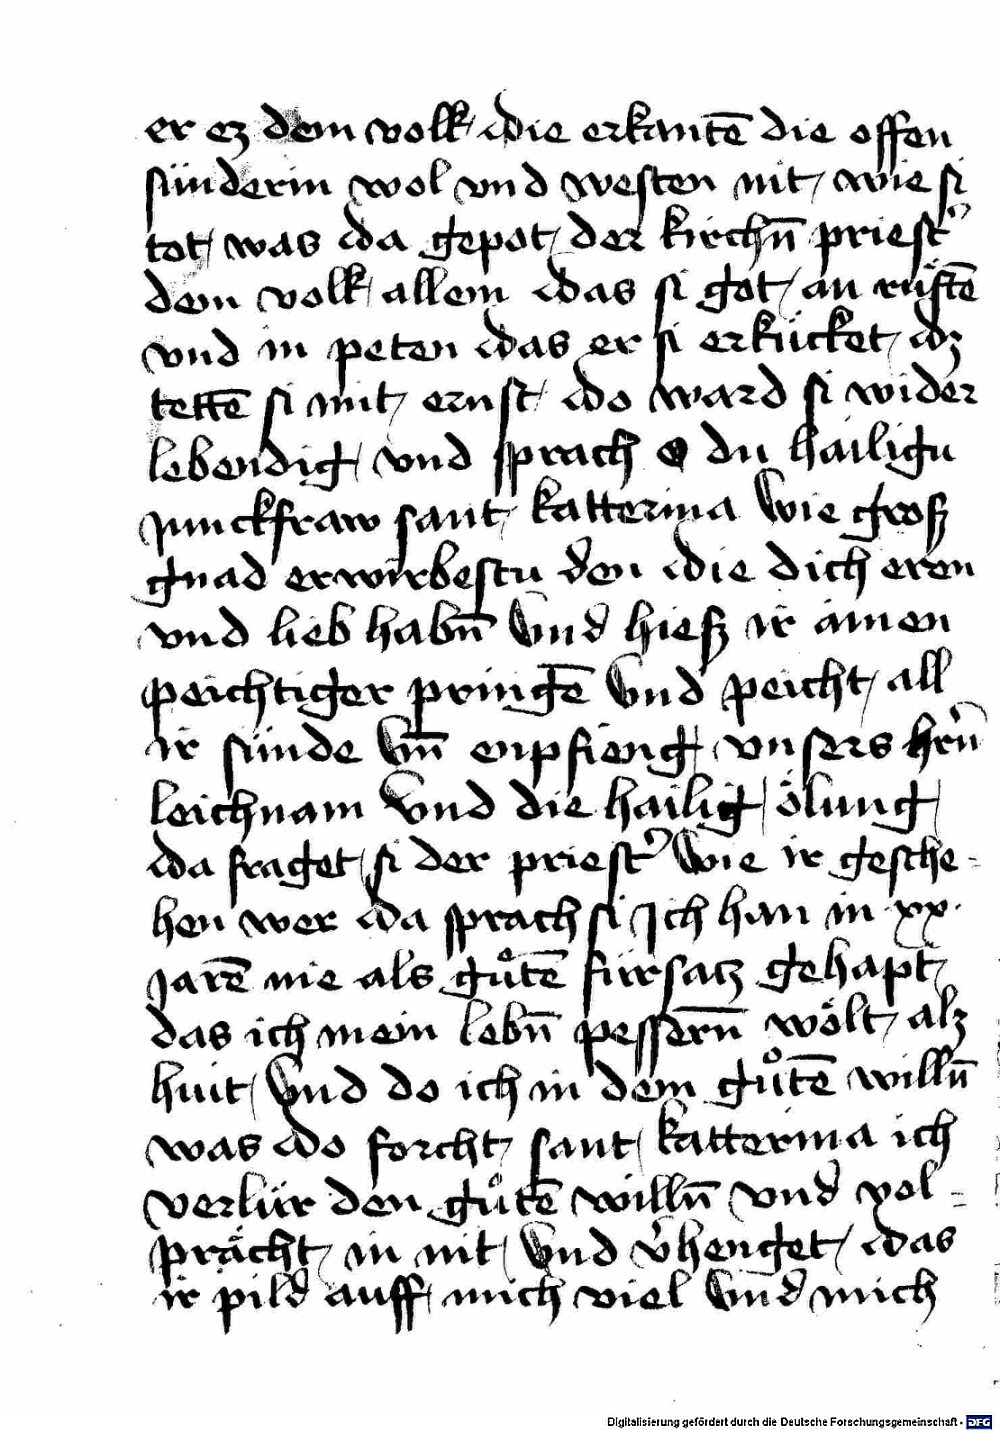 er ez dem volk die erkantē die offen
sünderin wol vnd westen nit wie si
tot was da gepot der kirchn̄ priest᾿
dem volk allem das si got an rufftē
vnd in peten das er si erkücket dz
tettē si mit ernst do ward si wider
lebendig vnd sprach o du hailigu
junckfraw sant katterina wie groß
gnad erwirbestu den die dich eren
vnd lieb habn̄ vnd hieß ir ainen
peichtiger pringē vnd peicht all
ir sünde vn̄ enpfieng vnsers hr̄n
leichnam vnd die hailig ölung
da fraget si der priest᾿ wie ir gesche-
hen wer da sprach si Ich han in xx.
jarē nie als gůtē fürsatz gehapt
das ich mein lebn̄ pesserñ wölt alz
huit vnd do ich in dem gůtē willn̄
was do forcht sant katterina ich
verlür den gůtē willn̄ vnd vol=
prächt in nit vnd v᾿henget das
ir pild auff mich viel vnd mich
Digitalisierung gefördert durch die Deutsche Forschungsgemeinschaft - DFG